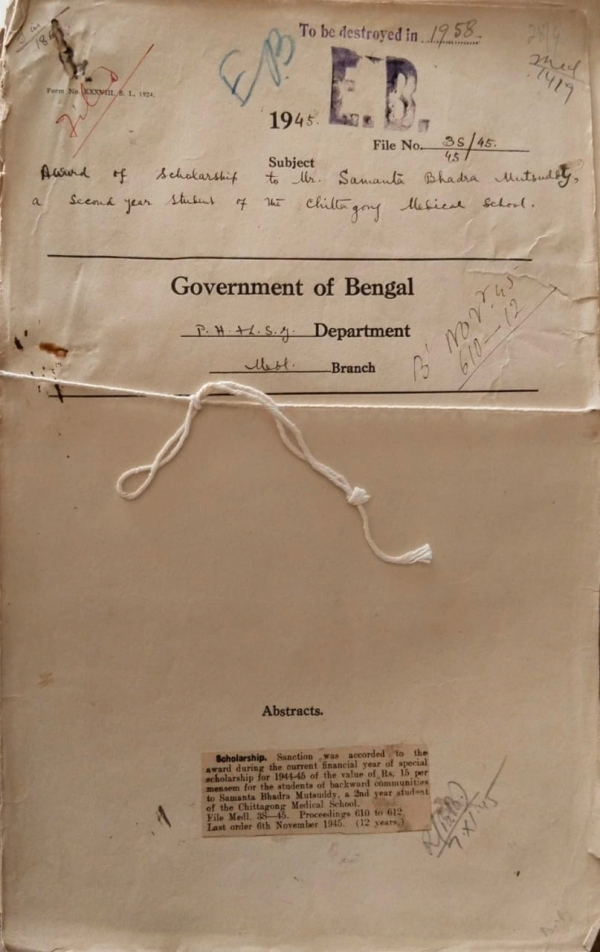 To be destroyed in 1958.
E.B.
E.B.
Med
1419
Form No. XXXVIII, S. I., 1924.
Filed
1945.
File No. 3S/45.
45
Subject
Award of Scholarship to Mr. Samanta Bhadra Mutsuddy,
a second year student of the Chittagong Medical School.
Government of Bengal
P. H. & L. S. G. Department
Medl. Branch
B' Novr. 45
610—12
Abstracts.
Scholarship. Sanction was accorded to the
award during the current financial year of special
scholarship for 1944-45 of the value of Rs. 15 per
mensem for the students of backward communities
to Samanta Bhadra Mutsuddy, a 2nd year student
of the Chittagong Medical School.
File Medl. 3S—45. Proceedings 610 to 612.
Last order 6th November 1945. (12 years.)
7.XI.45